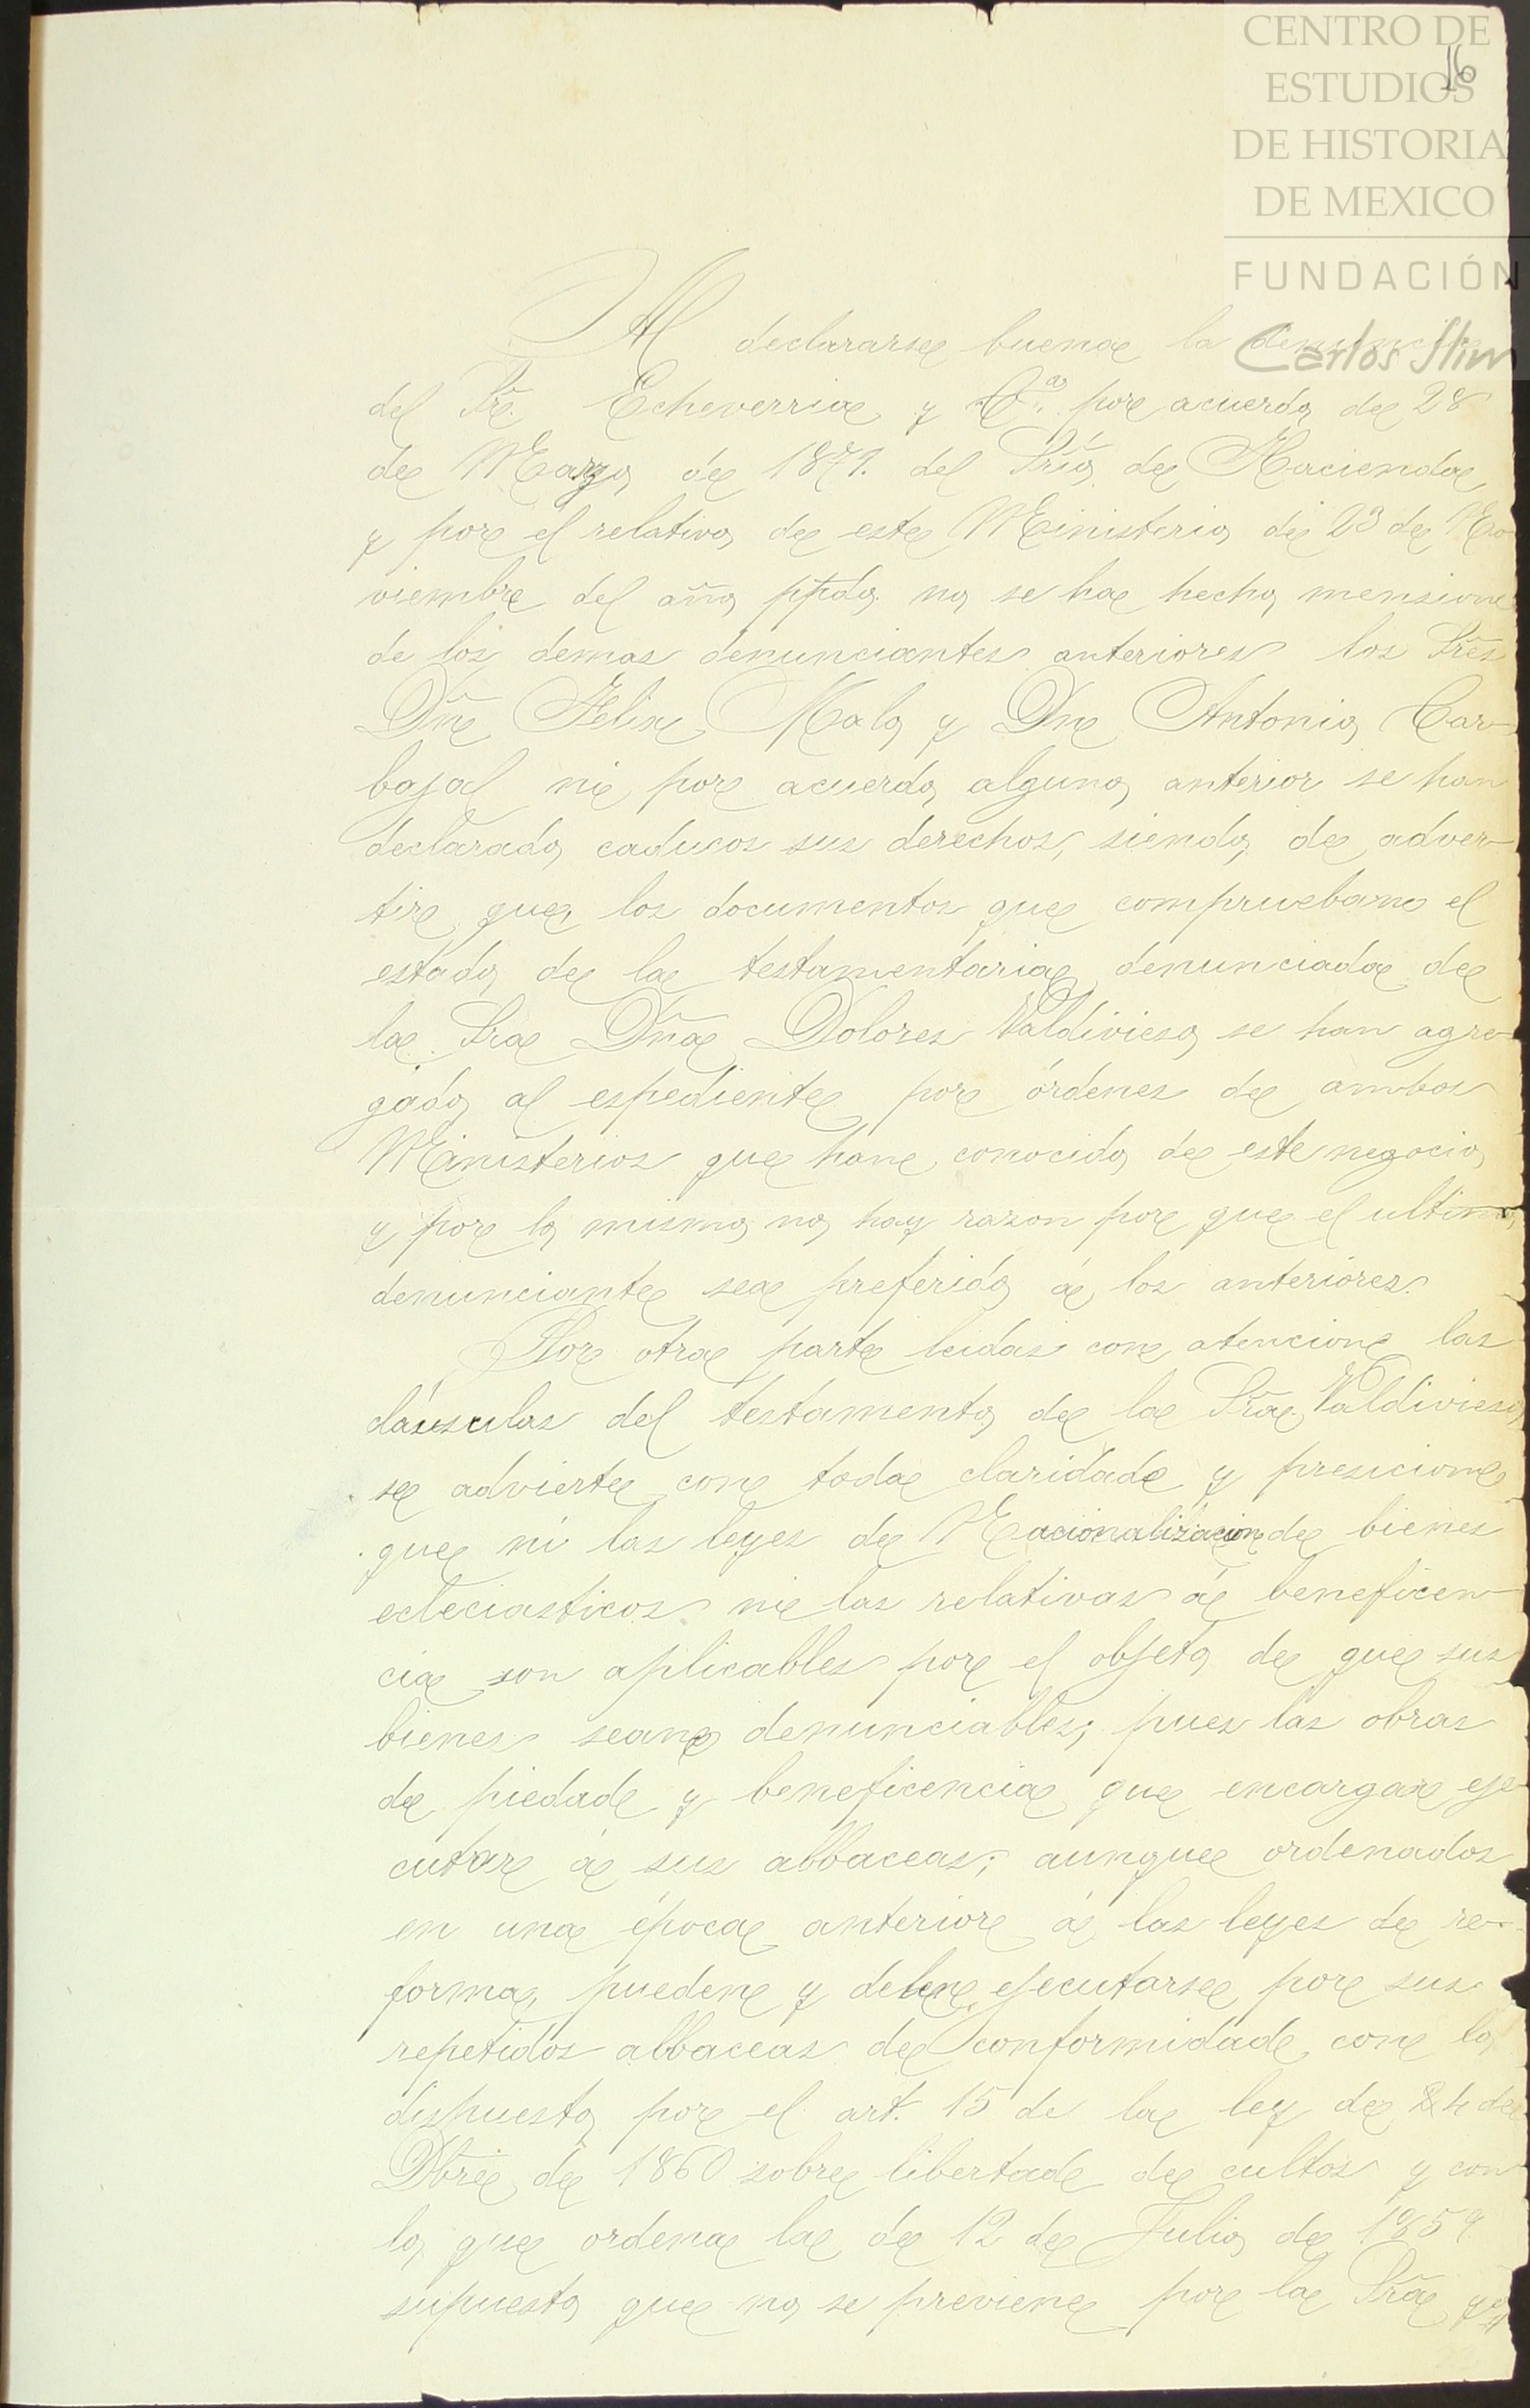 CENTRO DE
ESTUDIOS
DE HISTORIA
DE MEXICO
FUNDACIÓN
Carlos Slim
16
Al declararse buena la denuncia
del Sr. Echeverria y Cª. por acuerdo de 28
de Marzo de 1879. del Srio de Hacienda
y por el relativo de este Ministerio de 23 de No
viembre del año ppdo. no se ha hecho mension
de los demas denunciantes anteriores los Sres
Dn Felix Malo y Dn Antonio Car-
bajal ni por acuerdo alguno anterior se han
declarado caducos sus derechos, siendo de adver-
tir que los documentos que comprueban el
estado de la testamentaria denunciada de
la Sra Dña Dolores Valdivieso se han agre-
gado al espediente por órdenes de ambos
Ministerios que han conocido de este negocio,
y por lo mismo no hay razon por que el ultimo
denunciante sea preferido á los anteriores.
Por otra parte leidas con atencion las
cláusulas del testamento de la Sra. Valdivieso
se advierte con toda claridad y presicion
que ni las leyes de Nacionalizacion de bienes
ecleciasticos ni las relativas á beneficen-
cia son aplicables por el objeto de que sus
bienes sean denunciables; pues las obras
de piedad y beneficencia que encargara eje
cutar á sus albaceas; aunque ordenados
en una época anterior á las leyes de re-
forma, pueden y deben ejecutarse por sus
repetidos albaceas de conformidad con lo
dispuesto por el art. 15 de la ley de 4 de
Dbre de 1860 sobre libertad de cultos y con
lo que ordena la de 12 de Julio de 1859
supuesto que no se previene por la Sra